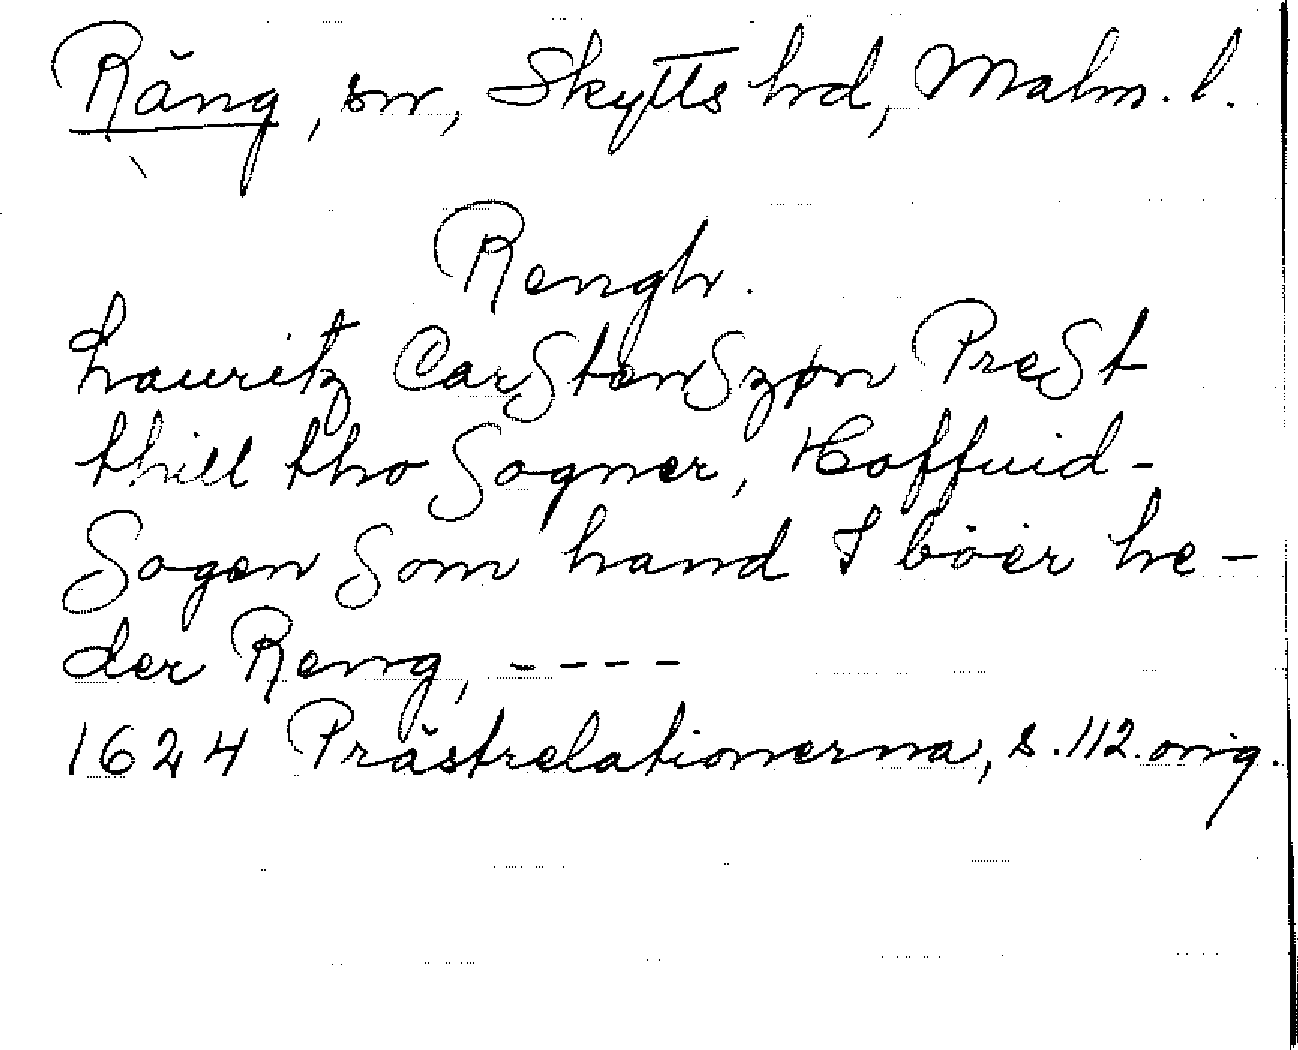 Räng, sn, Skytts hd, Malm. l.
Rengh.
Lauritz CarStenSzøn PreSt
thill tho Sogner, Hoffuid-
Sogen Som hand I böer he-
der Reng, ----
1624 Prästrelationerna, s. 112. orig.